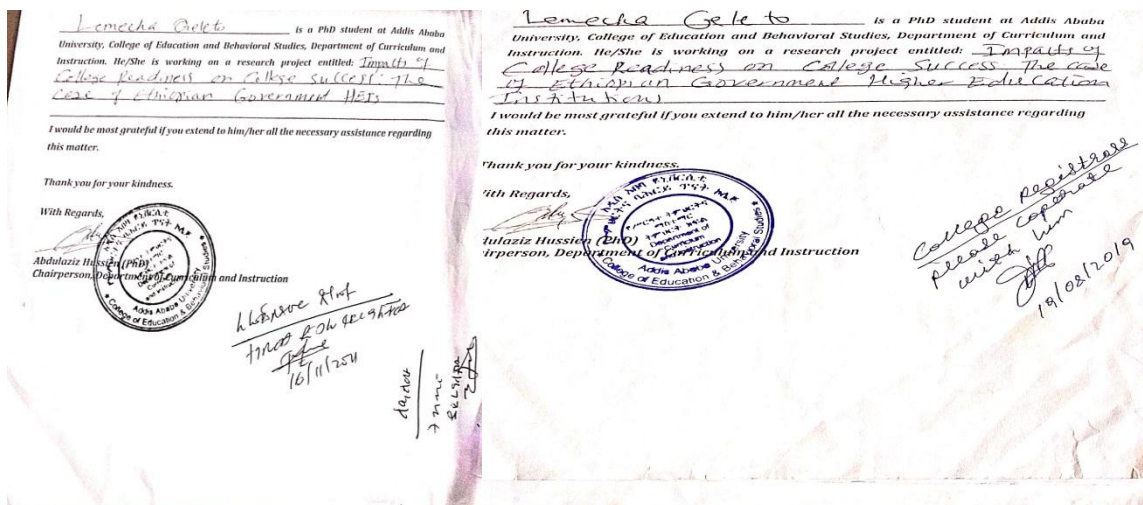 Lemecha Geleto is a PhD student at Addis Ababa
University, College of Education and Behavioral Studies, Department of Curriculum and
Instruction. He/She is working on a research project entitled: Impacts of
College Readiness on College Success: The
case of Ethiopian Government HEIs
I would be most grateful if you extend to him/her all the necessary assistance regarding
this matter.
Thank you for your kindness.
With Regards,
Abdulaziz Hussien (PhD)
Chairperson, Department of Curriculum and Instruction
Department of
Curriculum
and Instruction
Addis Ababa University
College of Education & Behavioral Studies
16/11/2011
Lemecha Geleto is a PhD student at Addis Ababa
University, College of Education and Behavioral Studies, Department of Curriculum and
Instruction. He/She is working on a research project entitled: Impacts of
College Readiness on College Success: The case
of Ethiopian Government Higher Education
Institutions
I would be most grateful if you extend to him/her all the necessary assistance regarding
this matter.
Thank you for your kindness.
ith Regards,
dulaziz Hussien (PhD)
irperson, Department of Curriculum and Instruction
አዲስ አበባ ዩኒቨርሲቲ
Department of
Curriculum
and Instruction
Addis Ababa University
College of Education & Behavioral Studies
College Registrars
please coperate
with him
19/08/2019